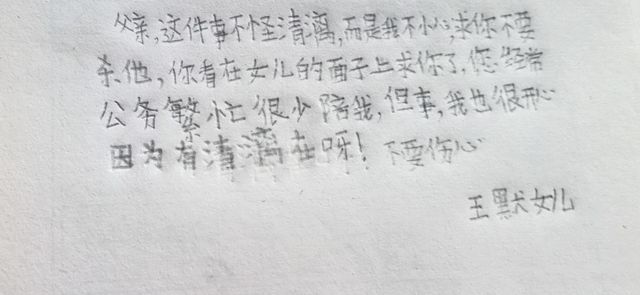 父亲,这件事不怪清漓,而是我不小心求你不要
杀他,你看在女儿的面子上求你了,您经常
公务繁忙很少陪我,但事,我也很开心
因为有清漓在呀!不要伤心
王默女儿